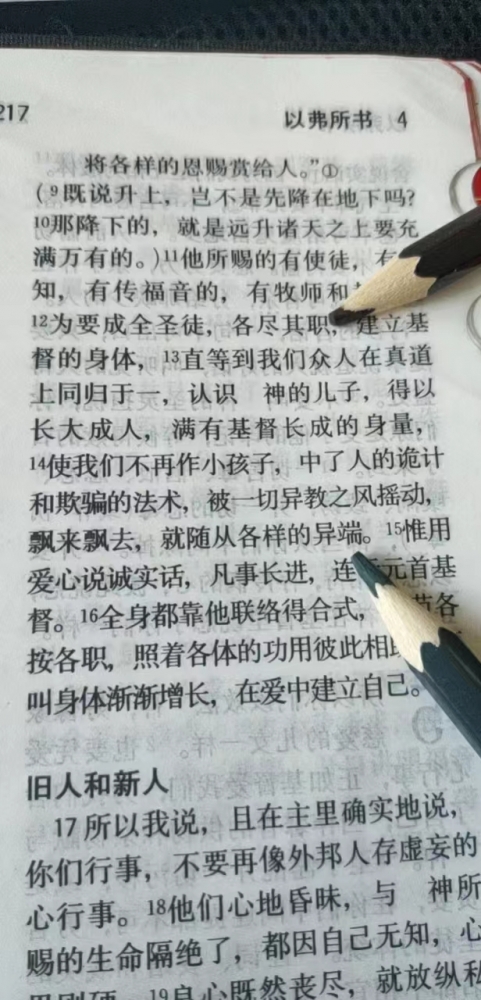 217 以弗所书 4
将各样的恩赐赏给人。”①
(⁹既说升上，岂不是先降在地下吗?
¹⁰那降下的，就是远升诸天之上要充
满万有的。)¹¹他所赐的有使徒，有
知，有传福音的，有牧师和
¹²为要成全圣徒，各尽其职，建立基
督的身体，¹³直等到我们众人在真道
上同归于一，认识　神的儿子，得以
长大成人，满有基督长成的身量，
¹⁴使我们不再作小孩子，中了人的诡计
和欺骗的法术，被一切异教之风摇动，
飘来飘去，就随从各样的异端。¹⁵惟用
爱心说诚实话，凡事长进，连 元首基
督。¹⁶全身都靠他联络得合式， 各
按各职，照着各体的功用彼此相
叫身体渐渐增长，在爱中建立自己。
旧人和新人
17 所以我说，且在主里确实地说，
你们行事，不要再像外邦人存虚妄的
心行事。¹⁸他们心地昏昧，与　神所
赐的生命隔绝了，都因自己无知，心
¹⁹良心既然丧尽，就放纵私